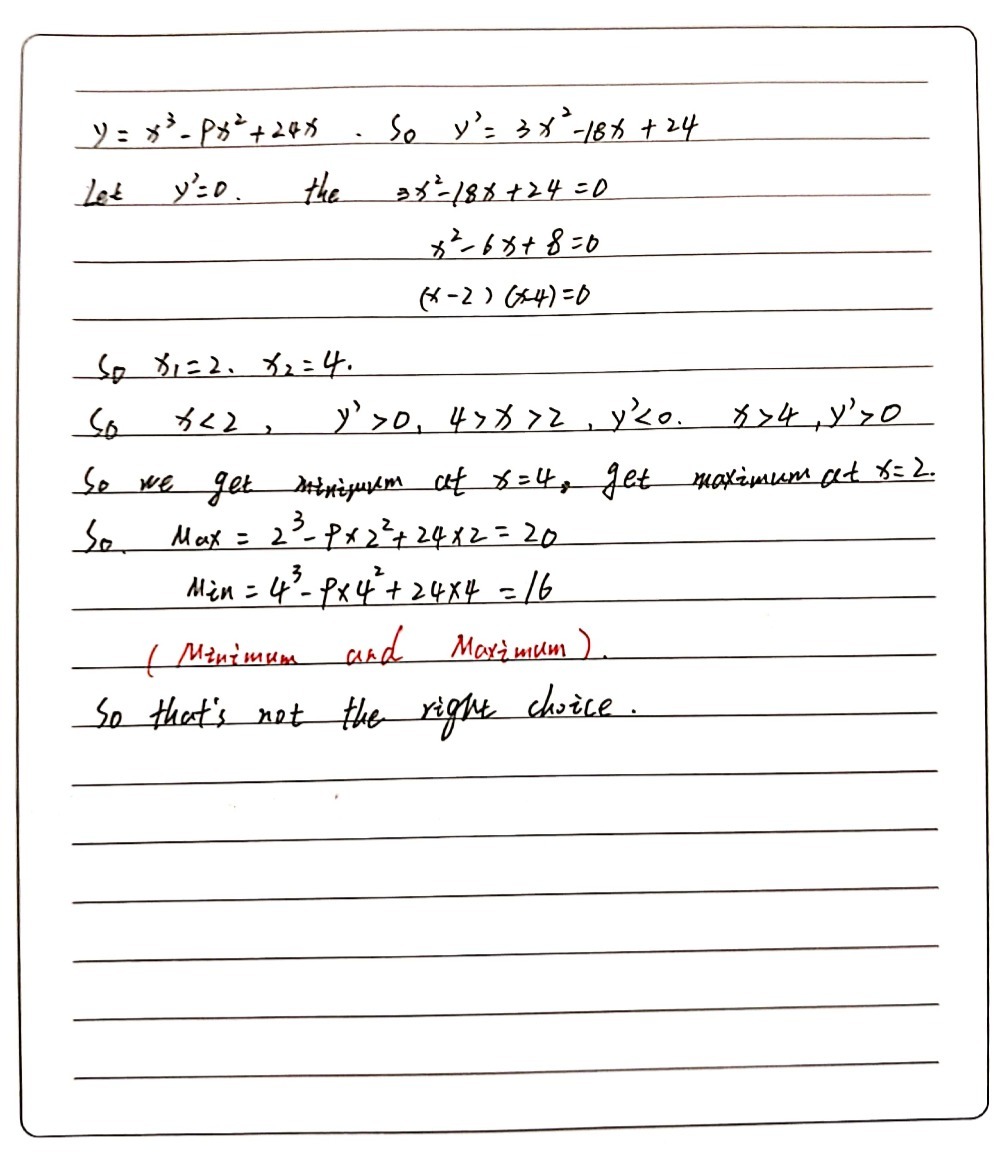 y = x³ - 9x² + 24x . So y' = 3x² - 18x + 24
Let y'=0. the 3x² - 18x + 24 = 0
x² - 6x + 8 = 0
(x-2)(x-4)=0
So x₁=2、x₂=4.
So x<2, y'>0, 4>x>2, y'<0. x>4, y'>0
So we get minimum at x=4, get maximum at x=2.
So. Max = 2³ - 9×2² + 24×2 = 20
Min = 4³ - 9×4² + 24×4 = 16
(Minimum and Maximum).
So that's not the right choice.